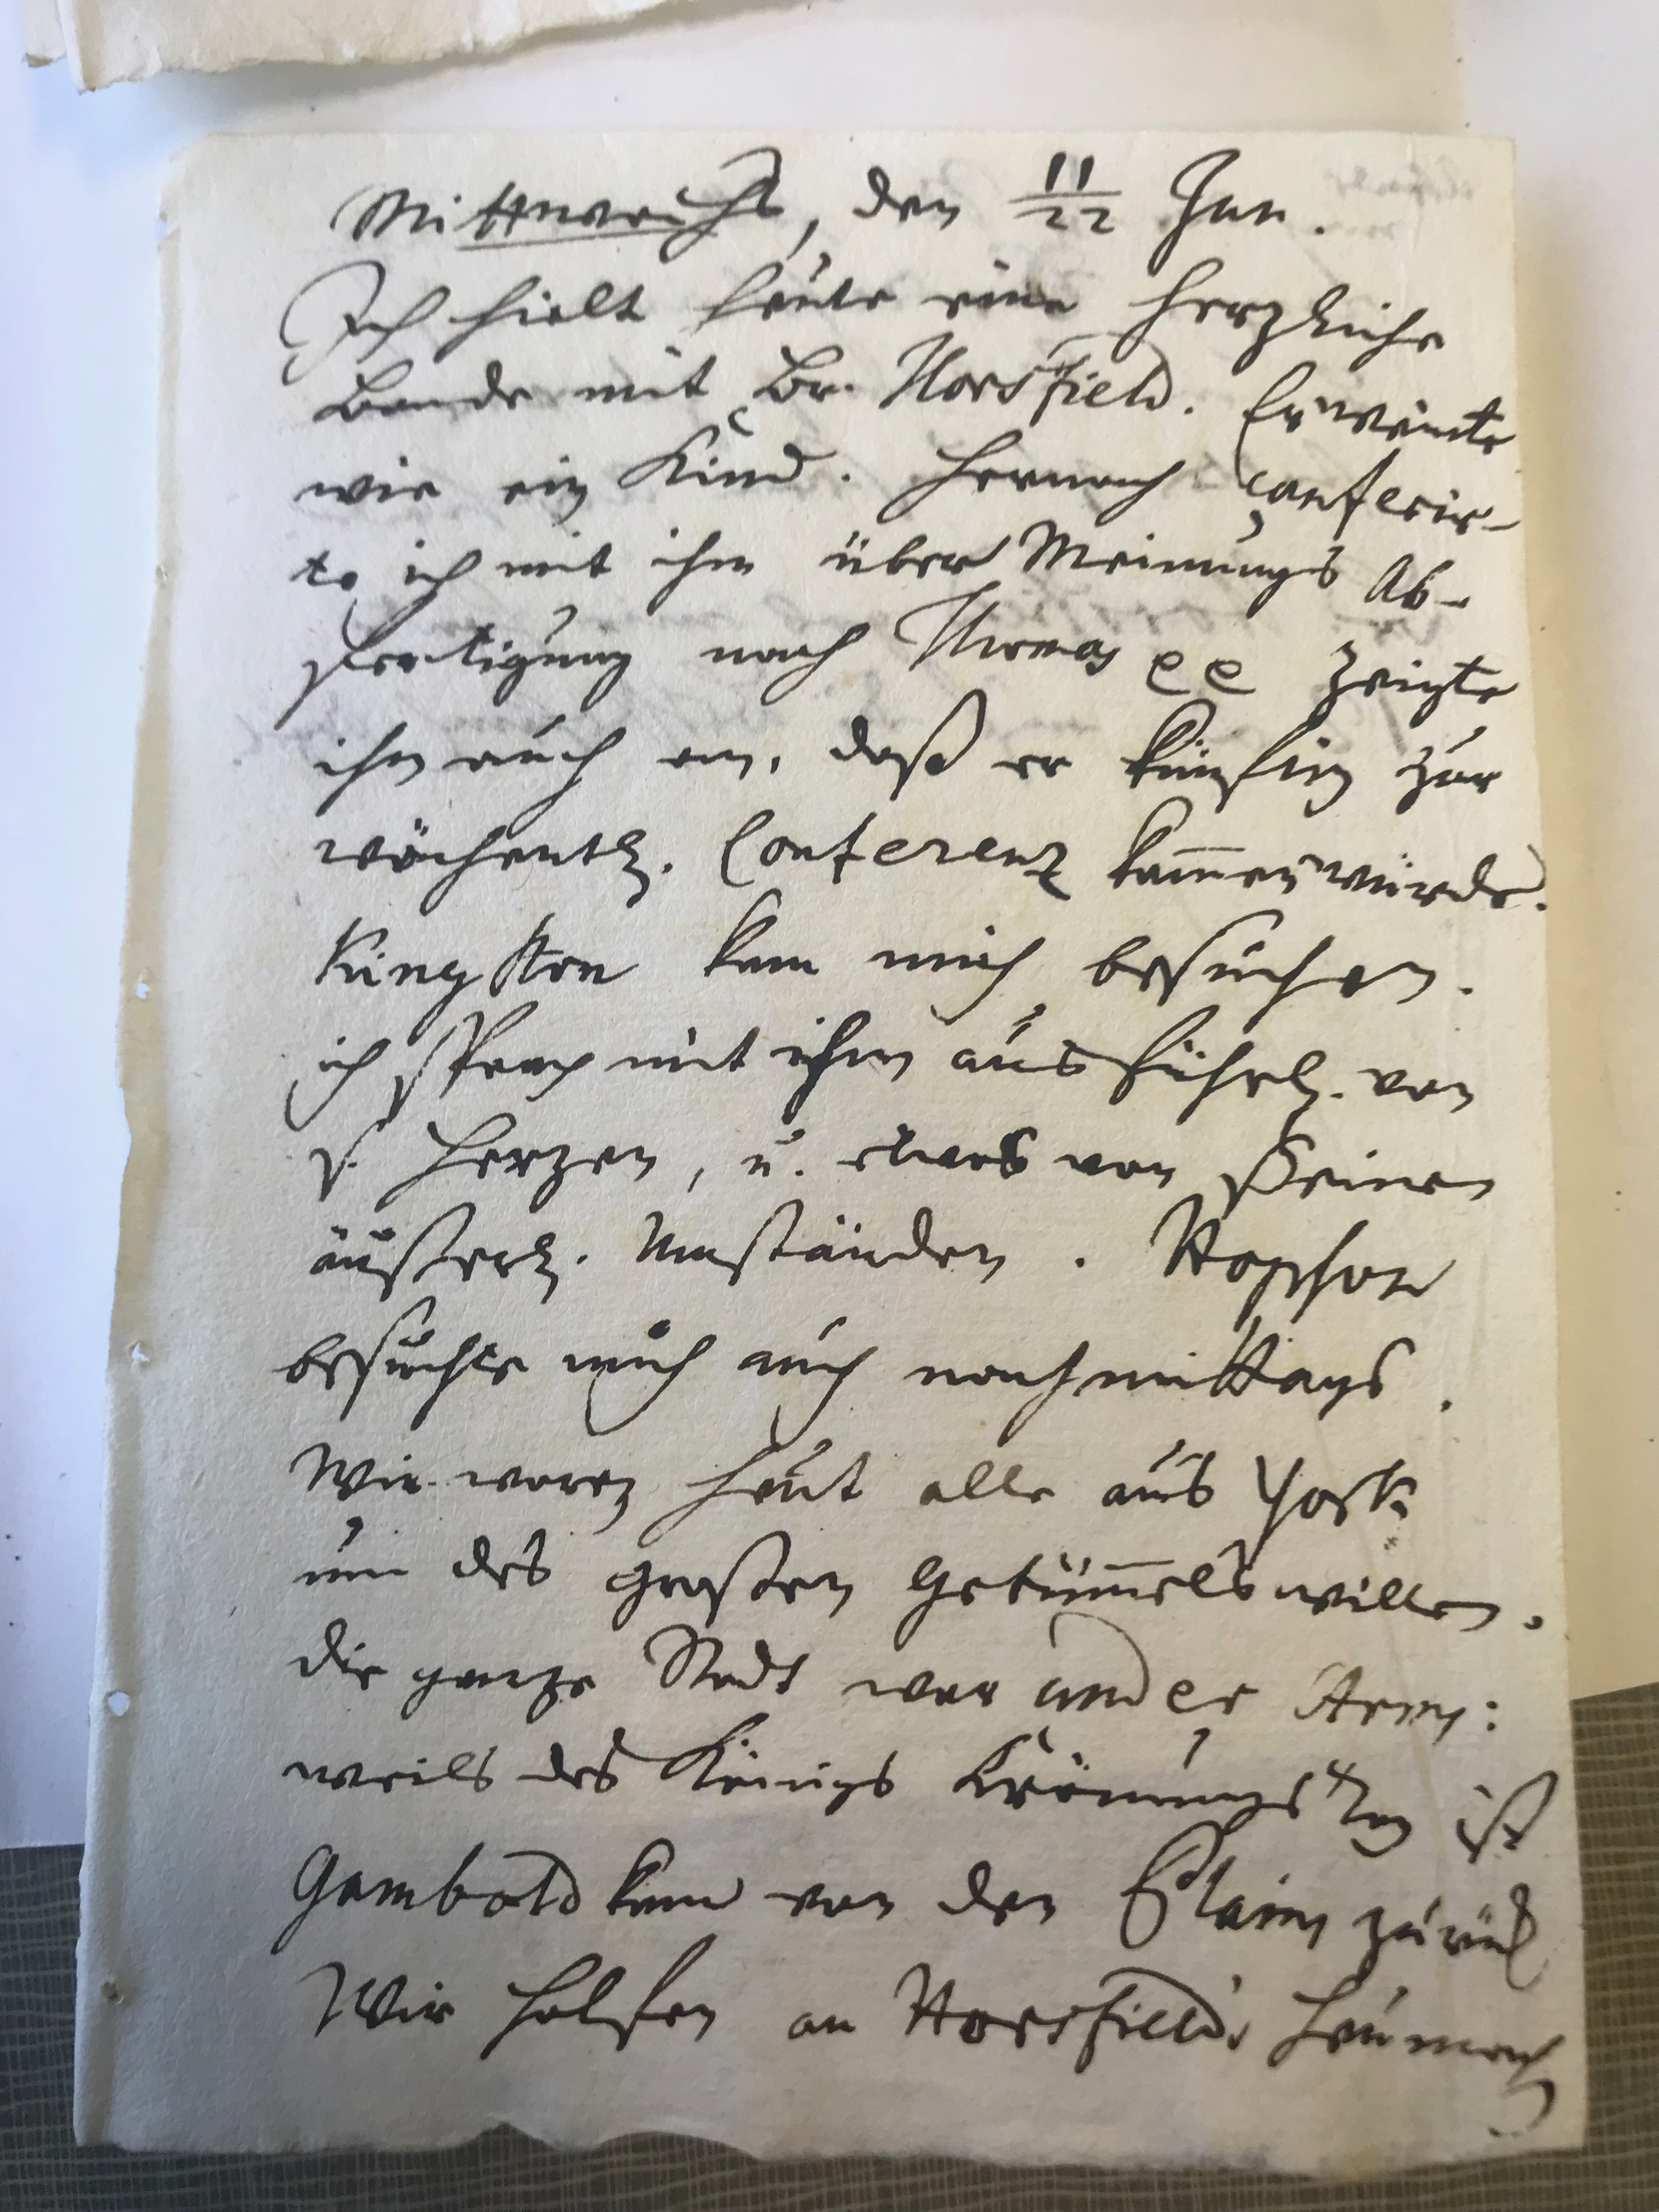 Mittwochs, den 11/22 Jun.
Ich hielt heute eine herzliche
Bande mit Br. Horsfield. Er weinte
wie ein Kind. Hernach conferir-
te ich mit ihm über Meinungs Ab-
fertigung nach Thomas pp zeigte
ihm auch an, daß er künftig zur
wöchentl. Conferenz kom̅en würde.
Kingston kam mich besuchen.
ich sprach mit ihm ausführl. von
s. Herzen, u. etwas von seinen
äußerl. Umständen. Hopson
besuchte mich auch nachmittags.
Wir waren heut alle aus York
um des großen Getüm̅els willen.
die ganze Stadt war under Arms:
weils des Königs Krönungstag ist
Gambold kam von den Plains zurück
Wir halfen an Horsfield's Heumach